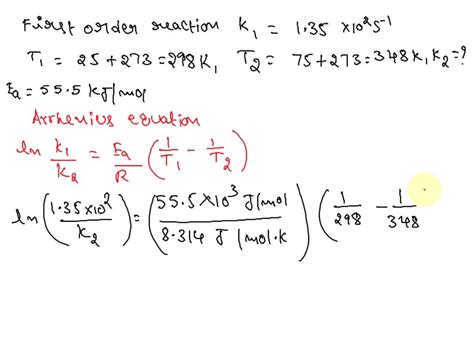 First order reaction K₁ = 1.35 ×10² s⁻¹
T₁ = 25+273=298K, T₂ = 75+273=348K, K₂=?
Ea = 55.5 KJ/mol
Arrhenius equation
ln K₁/K₂ = Ea/R (1/T₁ - 1/T₂)
ln(1.35×10²/K₂) = (55.5×10³ J/mol / 8.314 J/mol·K) (1/298 - 1/348